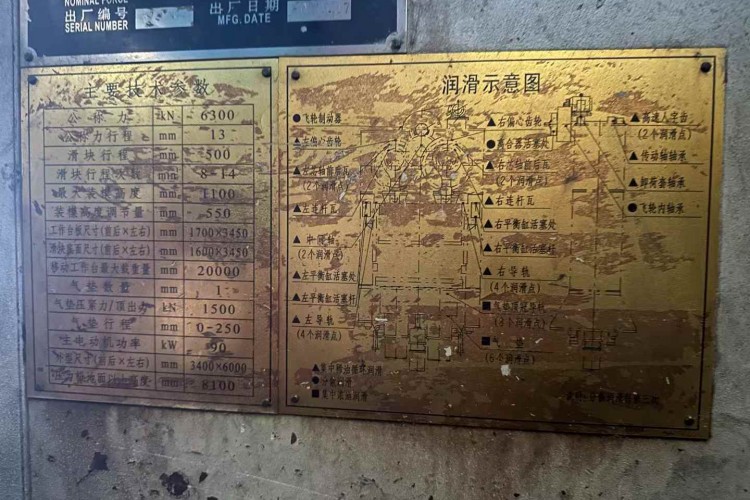 NOMINAL FORCE
出厂编号
SERIAL NUMBER
出厂日期
MFG. DATE
主要技术参数
公称力 kN 6300
公称力行程 mm 13
滑块行程 mm 500
滑块行程次数 8-14
最大装模高度 mm 1100
装模高度调节量 mm 550
工作台板尺寸(前后×左右) mm 1700×3450
滑块底面尺寸(前后×左右) mm 1600×3450
移动工作台最大载重量 20000
气垫数量 1
气垫压紧力/顶出力 kN 1500
气垫行程 mm 0-250
主电动机功率 kW 90
尺寸(前后×左右) mm 3400×6000
地面 高度 mm 8100
润滑示意图
●飞轮制动器
▲左偏心齿轮
(2个润滑点)
▲左连杆瓦
(2个润滑点)
▲左平衡缸活塞处
▲左平衡缸活塞杆
▲左导轨
(4个润滑点)
▲右偏心齿轮
●离合器活塞处
(2个润滑点)
▲右连杆瓦
▲右平衡缸活塞处
▲右平衡缸活塞杆
▲右导轨
(4个润滑点)
■气垫
(6个润滑点)
▲高速人字齿
(2个润滑点)
▲传动轴轴承
▲卸荷套轴承
●飞轮内轴承
▲集中稀油循环润滑
■集中浓油润滑